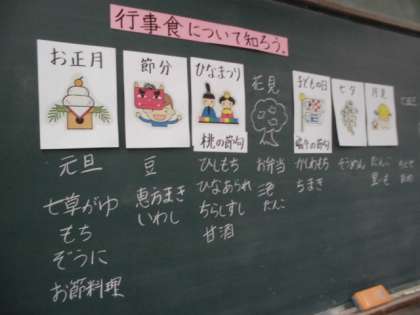 行事食について知ろう。
お正月
元旦
七草がゆ
もち
ぞうに
お節料理
節分
豆
恵方まき
いわし
ひなまつり
桃の節句
ひしもち
ひなあられ
ちらしずし
甘酒
花見
お弁当
だんご
子どもの日
端午の節句
かしわもち
ちまき
七夕
そうめん
月見
だんご